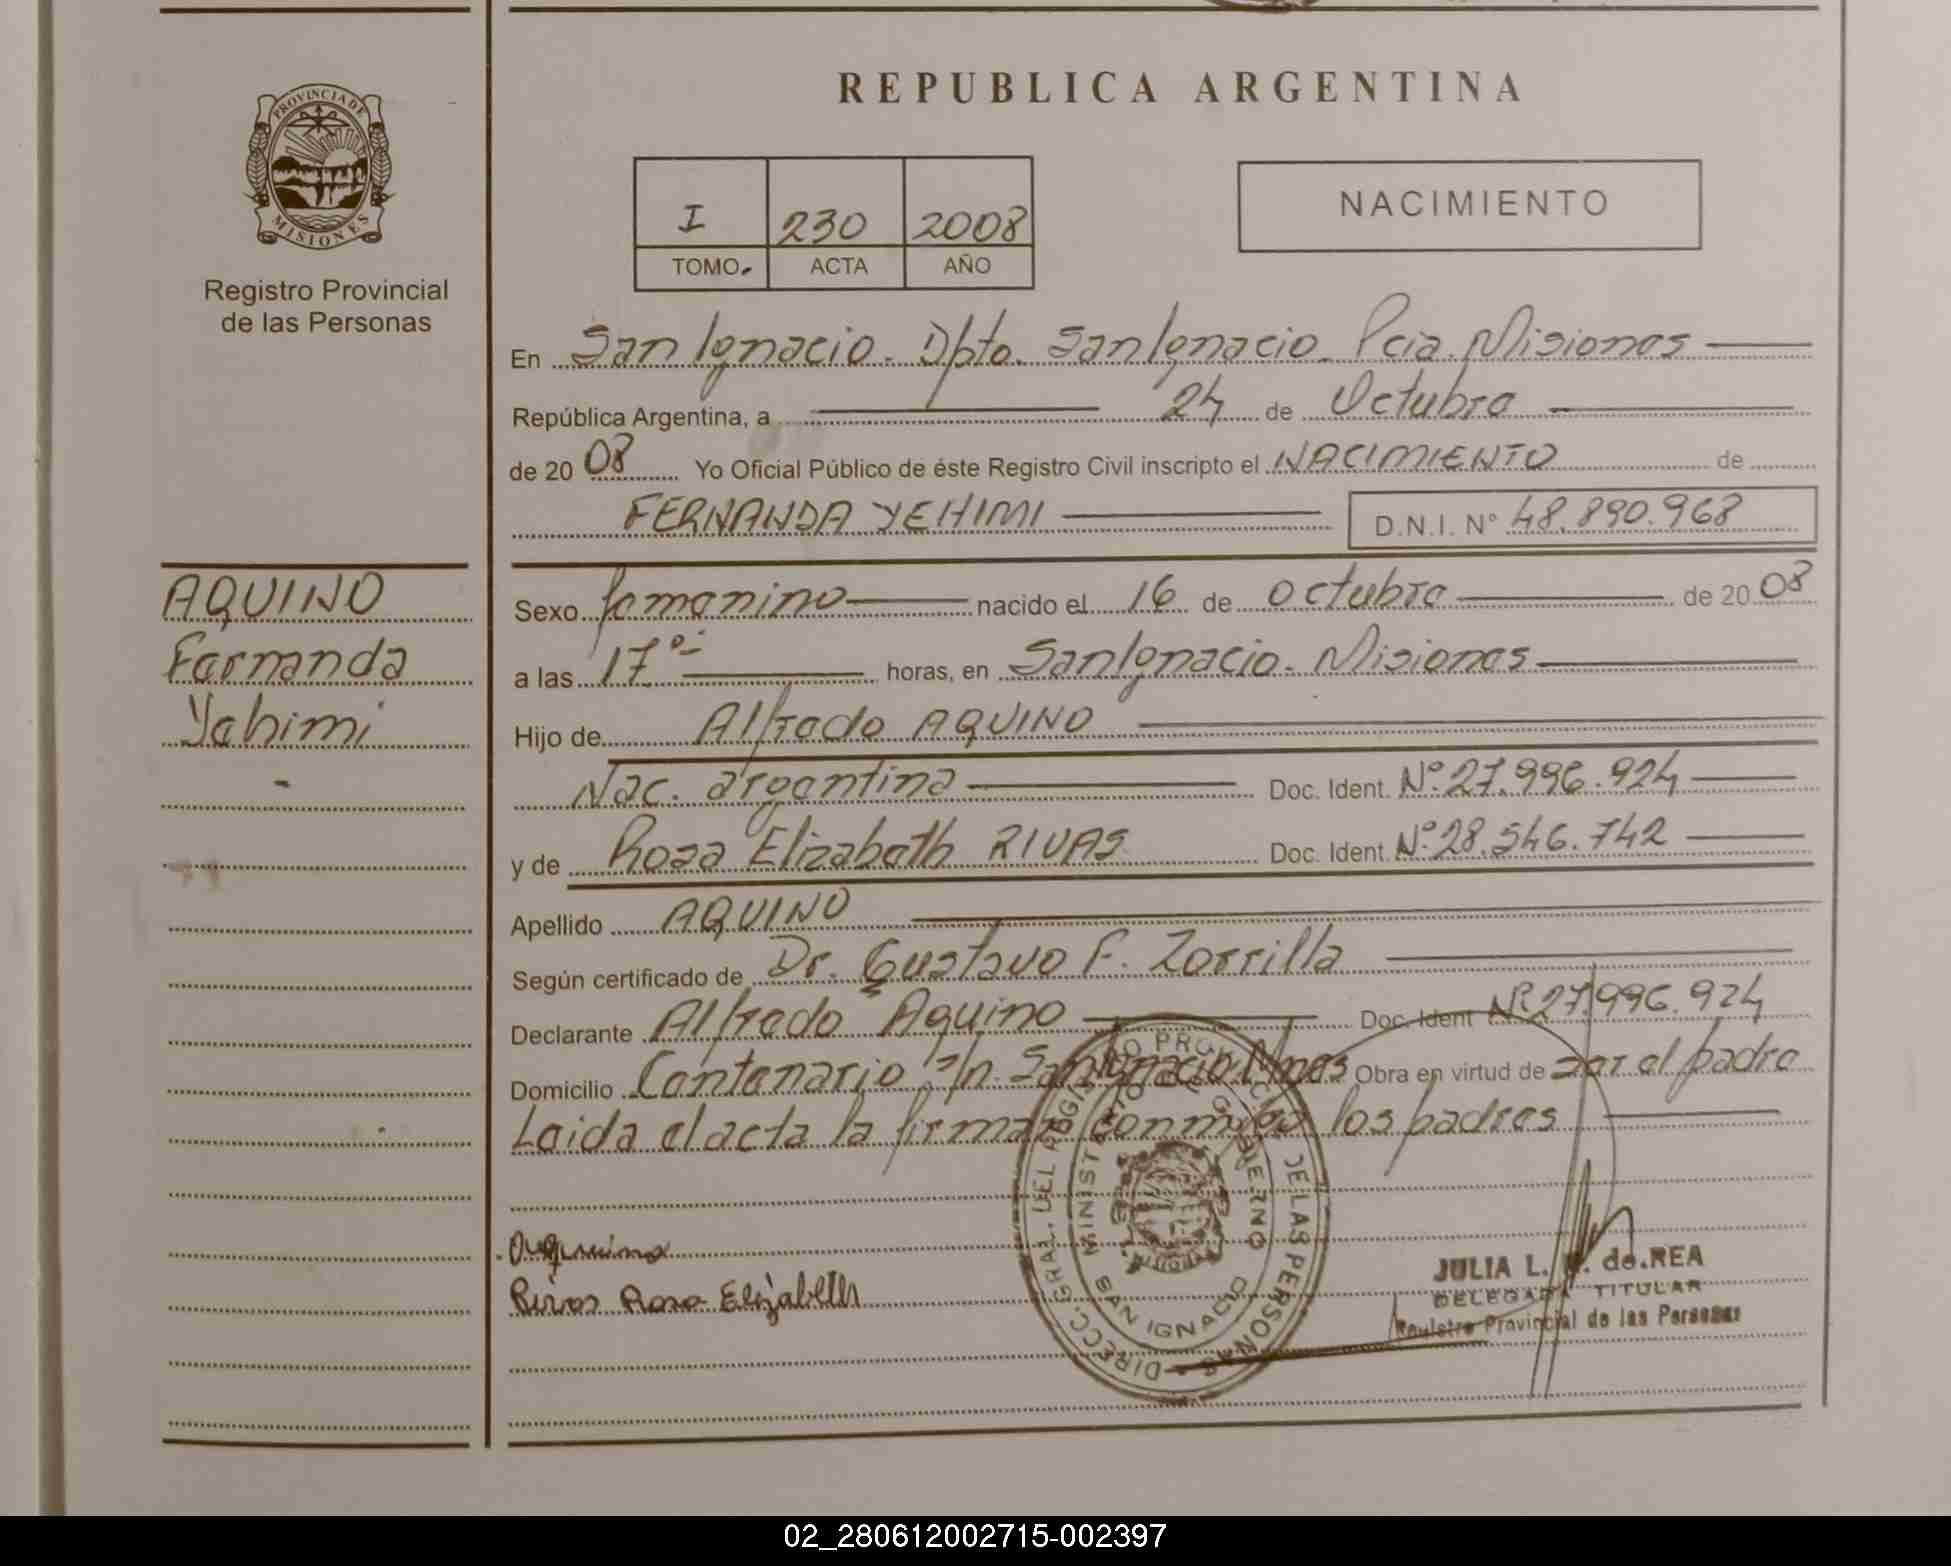 REPUBLICA ARGENTINA
PROVINCIA DE MISIONES
Registro Provincial
de las Personas
I 230 2008
TOMO. ACTA AÑO
NACIMIENTO
En San Ignacio. Dpto. San Ignacio. Pcia. Misiones
República Argentina, a 24 de Octubre
de 20 08 Yo Oficial Público de éste Registro Civil inscripto el NACIMIENTO de
FERNANDA YEHIMI D.N.I. N° 48.890.968
AQUINO
Fernanda
Yehimi
Sexo femenino nacido el 16 de octubre de 20 08
a las 17 horas, en San Ignacio. Misiones
Hijo de Alfredo AQUINO
Nac. argentina Doc. Ident. Nº 27.996.924
y de Rosa Elizabeth RIVAS Doc. Ident. Nº 28.546.742
Apellido AQUINO
Según certificado de Dr. Gustavo F. Zorrilla
Declarante Alfredo Aquino Doc. Ident Nº 27.996.924
Domicilio Centenario s/n. San Ignacio Mnes Obra en virtud de ser el padre
Leida el acta la firman conmigo los padres
Rivas Rosa Elizabeth
DIRECC. GRAL. DEL REGISTRO PROVINCIAL DE LAS PERSONAS
MINISTERIO DE GOBIERNO
SAN IGNACIO
JULIA L. de REA
DELEGADA TITULAR
Registro Provincial de las Personas
02_280612002715-002397